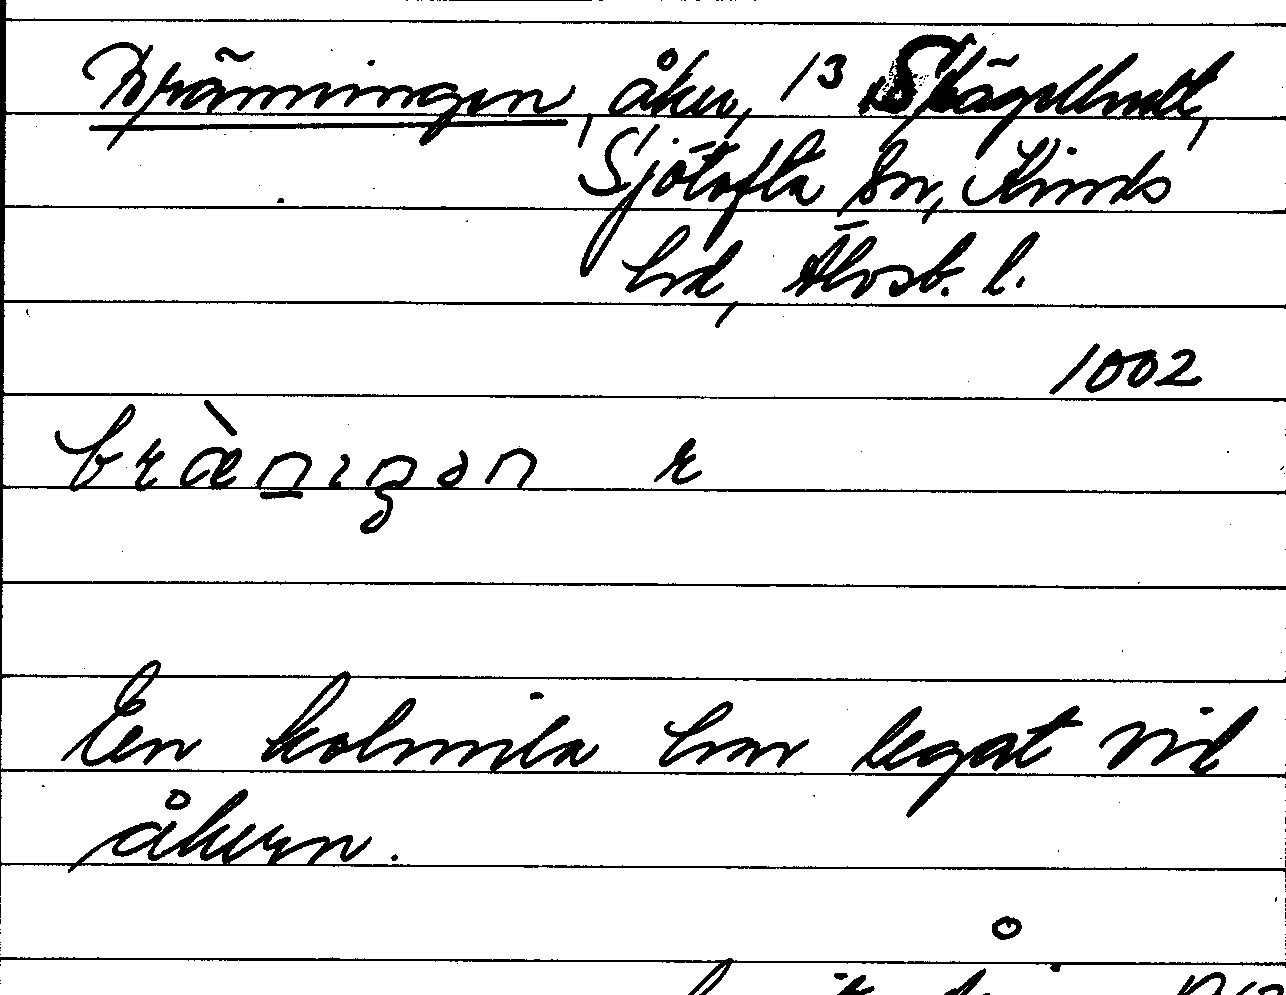 Bränningen, åker, 13 Skägelhult,
Sjötofta sn, Kinds
hd, Älvsb. l.
1002
bræ̀nıŋən r
En kolmila har legat vid
åkern.